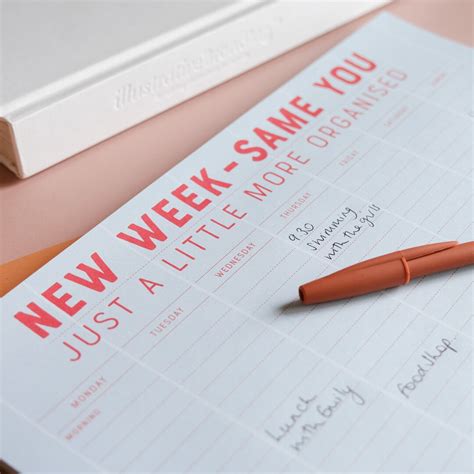 NEW WEEK - SAME YOU
JUST A LITTLE MORE ORGANISED
MONDAY
TUESDAY
WEDNESDAY
THURSDAY
FRIDAY
SATURDAY
SUNDAY
MORNING
9.30
swimming
with the girls
Lunch
with
foodshop